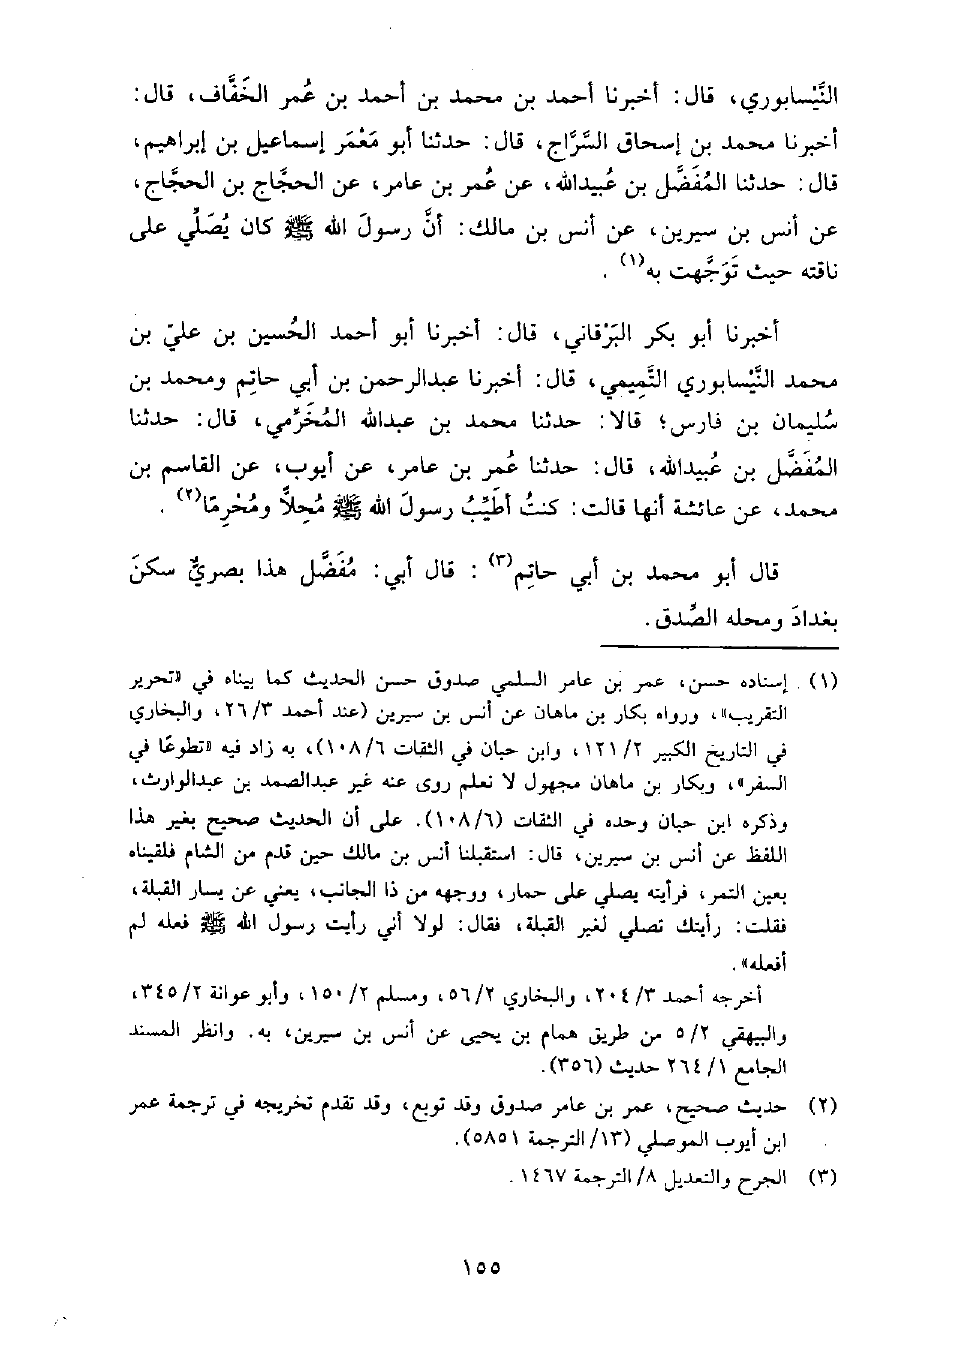 النَّيْسابوري، قال: أخبرنا أحمد بن محمد بن أحمد بن عُمر الخَفَّاف، قال:
أخبرنا محمد بن إسحاق السَّرَّاج، قال: حدثنا أبو مَعْمَر إسماعيل بن إبراهيم،
قال: حدثنا المُفَضَّل بن عُبيدالله، عن عُمر بن عامر، عن الحجَّاج بن الحجَّاج،
عن أنس بن سيرين، عن أنس بن مالك: أنَّ رسولَ الله ﷺ كان يُصَلِّي على
ناقته حيث تَوَجَّهت به(١) .
أخبرنا أبو بكر البَرْقاني، قال: أخبرنا أبو أحمد الحُسين بن عليّ بن
محمد النَّيْسابوري التَّمِيمي، قال: أخبرنا عبدالرحمن بن أبي حاتِم ومحمد بن
سُليمان بن فارس؛ قالا: حدثنا محمد بن عبدالله المُخَرِّمي، قال: حدثنا
المُفَضَّل بن عُبيدالله، قال: حدثنا عُمر بن عامر، عن أيوب، عن القاسم بن
محمد، عن عائشة أنها قالت: كنتُ أطَيِّبُ رسولَ الله ﷺ مُحِلاًّ ومُحْرِمًا(٢) .
قال أبو محمد بن أبي حاتِم(٣) : قال أبي: مُفَضَّل هذا بصريٌّ سكنَ
بغدادَ ومحله الصِّدق .
(١) إسناده حسن، عمر بن عامر السلمي صدوق حسن الحديث كما بيناه في «تحرير
التقريب»، ورواه بكار بن ماهان عن أنس بن سيرين (عند أحمد ٣/ ١٢٦، والبخاري
في التاريخ الكبير ٢/ ١٢١، وابن حبان في الثقات ٦/ ١٠٨)، به زاد فيه «تطوعًا في
السفر»، وبكار بن ماهان مجهول لا نعلم روى عنه غير عبدالصمد بن عبدالوارث،
وذكره ابن حبان وحده في الثقات (٦/ ١٠٨). على أن الحديث صحيح بغير هذا
اللفظ عن أنس بن سيرين، قال: استقبلنا أنس بن مالك حين قدم من الشام فلقيناه
بعين التمر، فرأيته يصلي على حمار، ووجهه من ذا الجانب، يعني عن يسار القبلة،
فقلت: رأيتك تصلي لغير القبلة، فقال: لولا أني رأيت رسول الله ﷺ فعله لم
أفعله» .
أخرجه أحمد ٣/ ٢٠٤، والبخاري ٢/ ٥٦، ومسلم ٢/ ١٥٠، وأبو عوانة ٢/ ٣٤٥،
والبيهقي ٢/ ٥ من طريق همام بن يحيى عن أنس بن سيرين، به. وانظر المسند
الجامع ١/ ٢٦٤ حديث (٣٥٦).
(٢) حديث صحيح، عمر بن عامر صدوق وقد توبع، وقد تقدم تخريجه في ترجمة عمر
ابن أيوب الموصلي (١٣/ الترجمة ٥٨٥١).
(٣) الجرح والتعديل ٨/ الترجمة ١٤٦٧ .
١٥٥